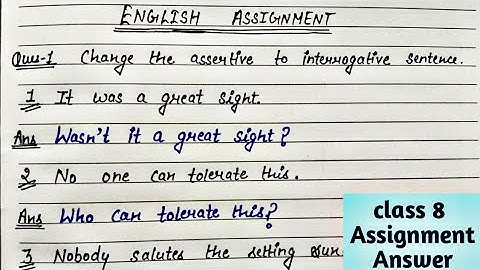 ENGLISH ASSIGNMENT
Ques-1 Change the assertive to interrogative sentence.
1 It was a great sight.
Ans Wasn't it a great sight?
2 No one can tolerate this.
Ans Who can tolerate this?
3 Nobody salutes the setting sun
class 8
Assignment
Answer